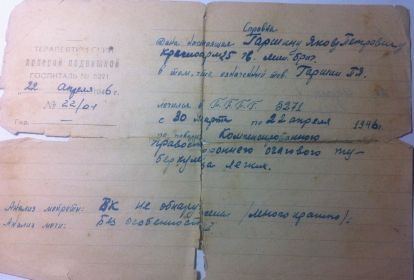 Справка
ТЕРАПЕВТИЧЕСКИЙ
ПОЛЕВОЙ ПОДВИЖНОЙ
ГОСПИТАЛЬ № 5271
22 апреля 1946 г.
№ 22/01
Гор. —
Дана настоящая Гаршину Якову Петровичу
красноарм. 25 гв. мин. бриг.
в том, что означенный тов. Гаршин
лечился в 5271
с 30 марта по 22 апреля 1946 г.
по поводу Компенсированного
правостороннего очагового ту-
беркулеза легких.
Анализ мокроты: ВК не обнаружены /многократно/.
Анализ мочи: Без особенностей